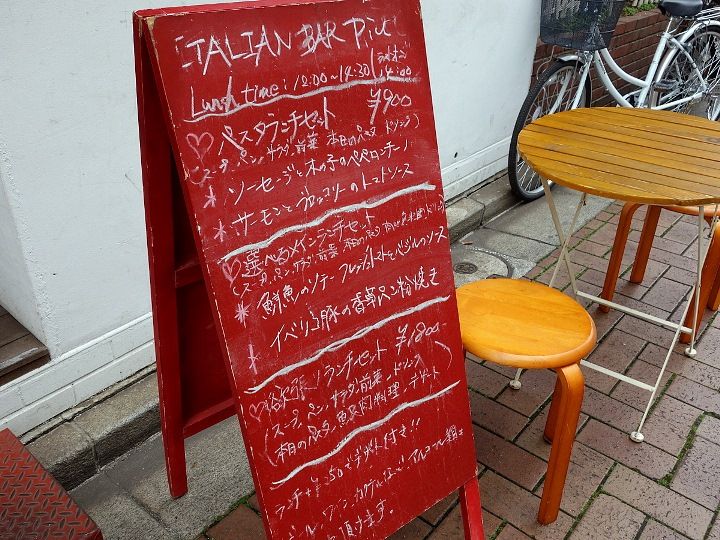 ITALIAN BAR Picc
Lunch time: 12:00~14:30 ラストオーダー 14:00
♡ パスタランチセット ¥900
(スープ、パン、サラダ、前菜 本日のパスタ ドリンク)
* ソーセージと木の子のペペロンチーノ
* サーモンとブロッコリーのトマトソース
♡ 選べるメインランチセット
(スープ、パン、サラダ、前菜
* 鮮魚のソテー フレッシュトマトとバジルのソース
* イベリコ豚の香草パン粉焼き
♡ 欲張りランチセット ¥1800-
(スープ、パン、サラダ、前菜、ドリンク
本日のパスタ、魚又は肉料理、デザート)
ランチ+¥50でデザート付き!!
ビール、ワイン、カクテル アルコール
頂けます。